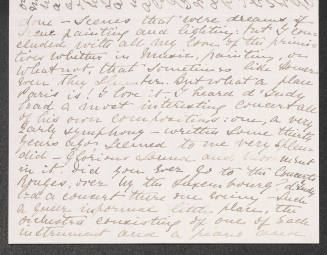 done – Scenes that were dreams of
scenic painting and lighting. But I con-
cluded with all my love of the primi-
tives whether in music, painting, or
what not, that sometimes
over they But what a place
Paris is! I love it. I heard d'Indy
lead a most interesting concert all
of his own compositions: one, a very
early symphony – written some thirty
years ago, seemed to me very splen-
did – Glorious sound and
in it. Did you ever go to the Concerts
Rouges, over by the Luxembourg – d'Indy
led a concert there one evening – Such
a queer informal little place, the
orchestra consisting of one of each
instrument and a piano